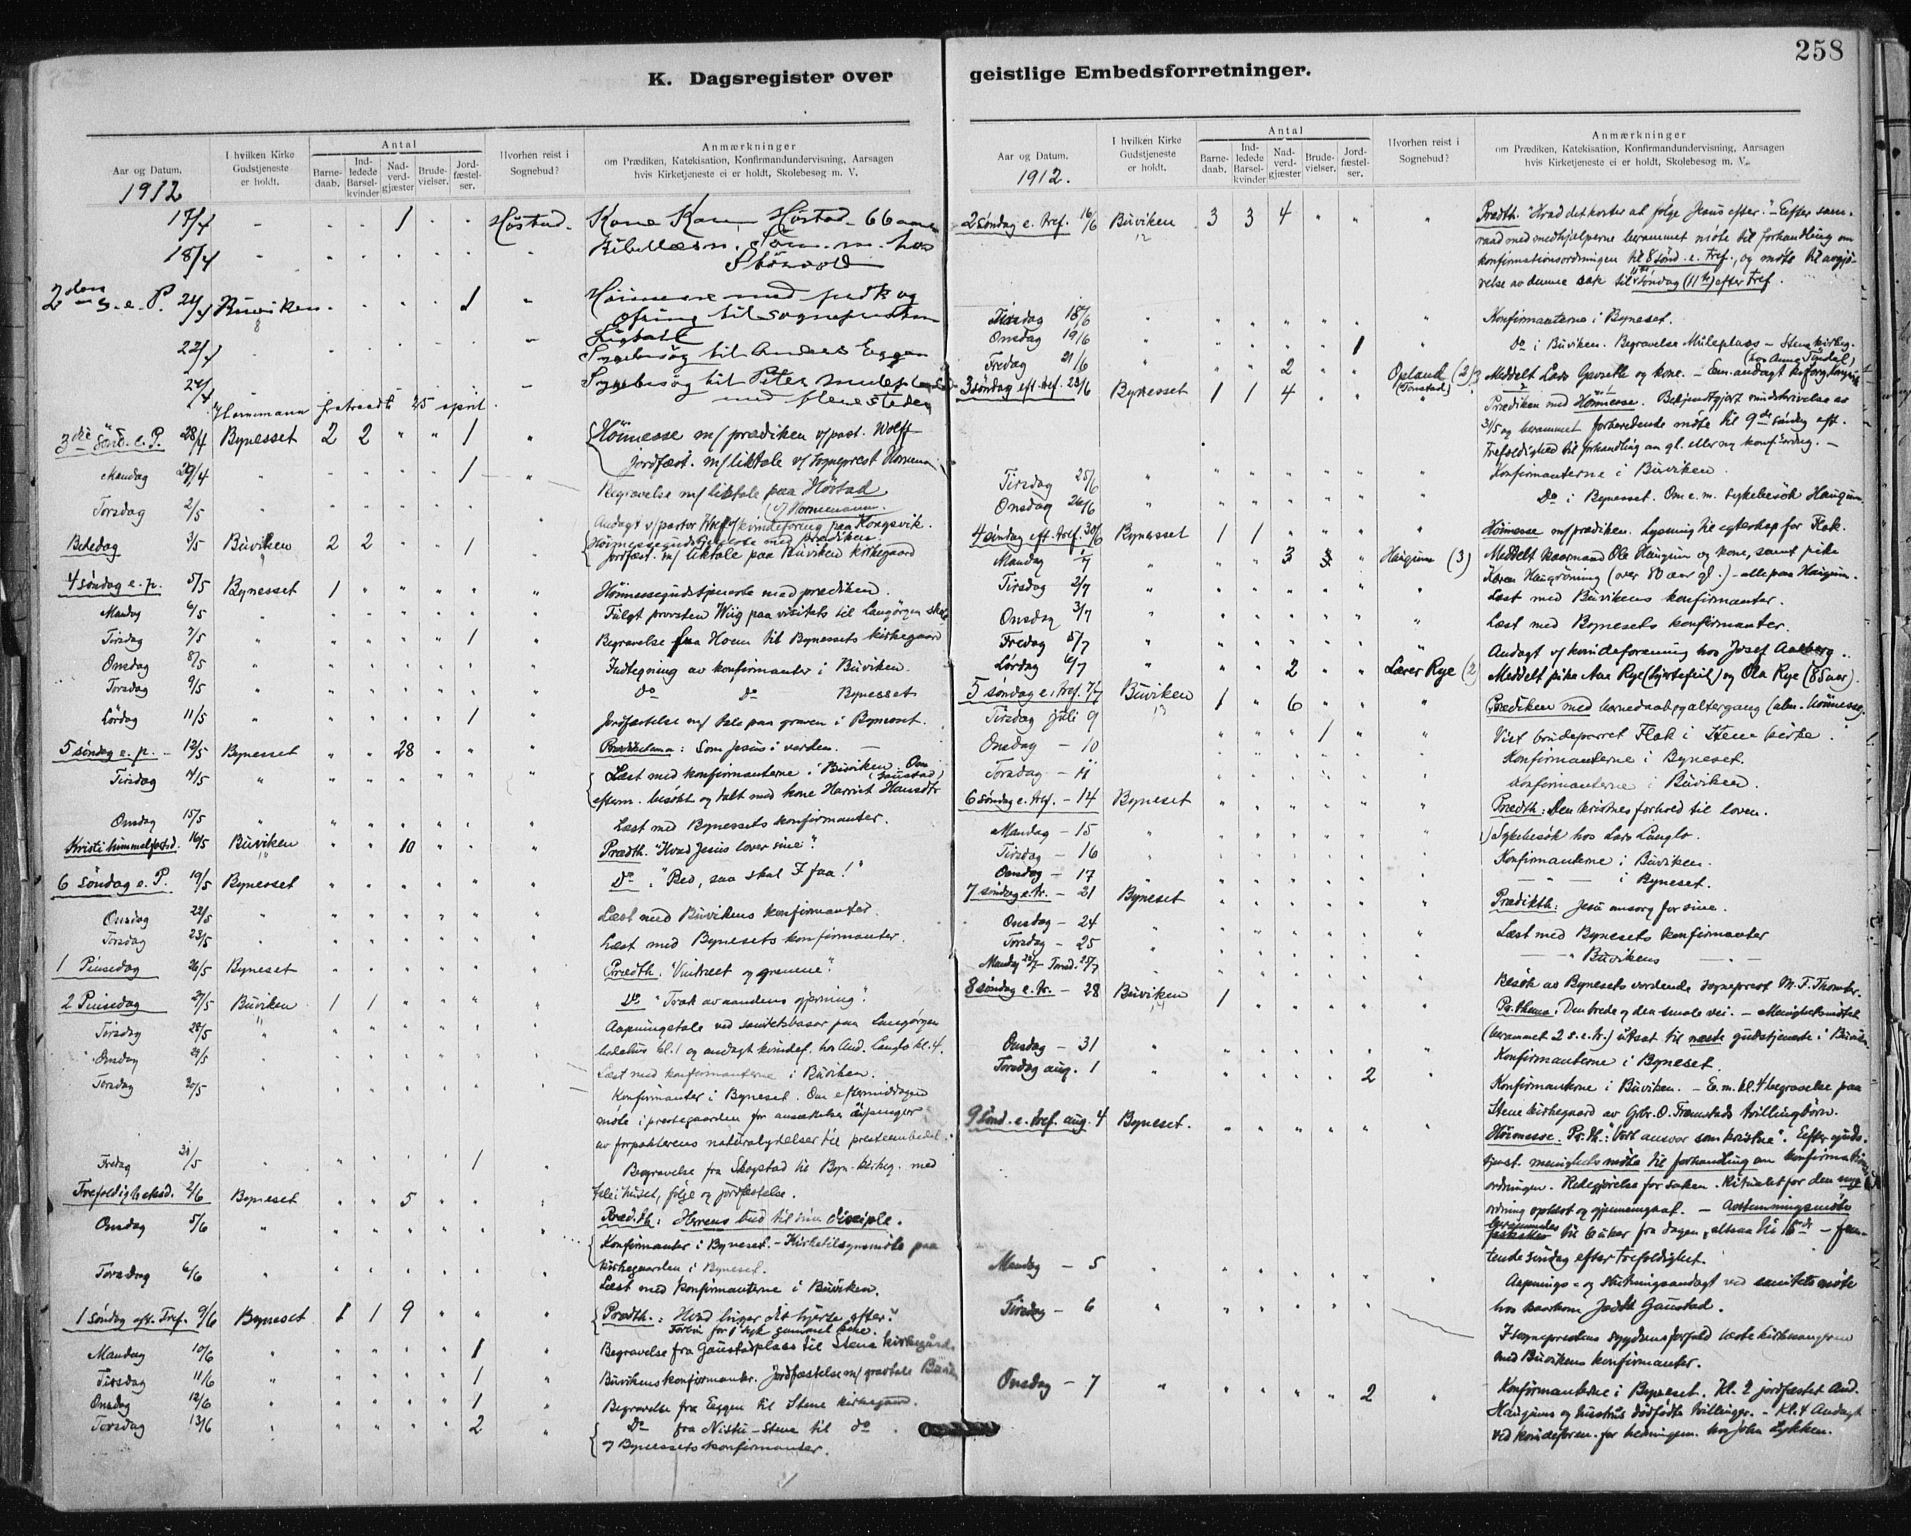 258
K. Dagsregister over geistlige Embedsforretninger.
Aar og Datum.
1912
I hvilken Kirke Gudstjeneste er holdt.
Antal
Barnedaab.
Indledede Barselkvinder
Nadverdgjæster
Brudevielser.
Jordfæstelser.
Hvorhen reist i Sognebud?
Anmærkninger
om Prædiken, Katekisation, Konfirmandundervisning, Aarsagen
hvis Kirketjeneste ei er holdt, Skolebesøg m. V.
17/4 " " " 1 " " Høstad. Kone Høstad 66 aar
18/4
2den s. e. P. 21/4 Buviken 8 1 Höimesse med
ofring til sognepresten
Ligtale
22/4 Sygebesøg til Anders Eggen
24/4 Sygebesøg til Peter
Hornemann fratraadt 25 april
3die sønd. e. P. 28/4 Bynesset 2 2 " " 1 " Höimesse m/ prædiken v/ past. Wolff
jordfæst. m/ liktale v/ sogneprest
Mandag 29/4 " 1 " Begravelse m/ liktale paa Høstad
v/ Hornemann.
Torsdag 2/5 Andagt v/ pastor Wolf v/ kvindeforing paa Kongsvik.
Bededag 3/5 Buviken 9 2 2 " " 1 Höimessegudstjeneste med prædiken.
Jordfæst. m/ liktale paa Buviken kirkegaard
4 søndag e. p. 5/5 Bynesset 1 " " " " " Höimessegudstjeneste med prædiken.
Mandag 6/5 Fulgt provsten Wiig paa visitats til Langørgen
Tirsdag 7/5 " 1 " Begravelse fra Hoem til Bynessets kirkegaard
Onsdag 8/5 Indtegning av konfirmanter i Buviken.
Torsdag 9/5 Do do Bynesset
Lørdag 11/5 1 Jordfæstelse m/ tale paa graven i Bynesset.
5 søndag e. p. 12/5 Bynesset " " 28 " " " Prædiktema: Som Jesus i verden.
Tirsdag 14/5 Læst med konfirmanterne i Buviken. Om
(Gaustad)
efterm. besøkt og talt med kone Harriet
Onsdag 15/5 Læst med Bynessets konfirmanter.
Kristi himmelfartsd. 16/5 Buviken " " 10 " " " Prædth. "Hvad Jesus lover sine".
6 søndag e. P. 19/5 Bynesset Do "Bed, saa skal I faa!"
Onsdag 22/5 Læst med Buvikens konfirmanter.
Torsdag 23/5 Læst med Bynesets konfirmanter.
1 Pinsedag 26/5 Byneset Prædth. "Vintræet og grenene".
2 Pinsedag 27/5 Buviken 1 1 " " " " Do "Træk av aandens gjerning".
Tirsdag 28/5 Aapningstale ved sanitetsbasar paa Langørgen
Onsdag 29/5 kl. 1 og andagt kvindef. hos And. Langlo kl. 4.
Læst med konfirmanterne i Buviken.
Torsdag 30/5 Konfirmanter i Byneset. Om eftermiddagen
møte i prestegaarden for
av forpakterens naturalydelser til presteembedet.
Fredag 31/5 1 Begravelse fra Skogstad til Byn. kirkeg. med
følge og jordfæstelse.
Trefoldighetssd. 2/6 Byneset " " 5 " " " Præd.th.: Herrens bud til sine disciple.
Onsdag 5/6 Konfirmanter i Byneset. - Kirketilsynsmøte paa
kirkegaarden i Byneset.
Torsdag 6/6 Læst med konfirmanterne i Buviken.
1 søndag eft. Tref. 9/6 Byneset 1 1 9 " " " Prædth.: Hvad higer dit hjerte efter?
Forbøn for 1 syk gammel kone.
Mandag 10/6 1 Begravelse fra Gaustadplass til Stene kirkegaard
Tirsdag 11/6 1 Buvikens konfirmanter. Jordfæstelse m/ gravtale
Onsdag 12/6 1 Begravelse fra Eggen til Stene kirkegaard.
Torsdag 13/6 2 Do fra Nistu-Stene til do
og Bynessets konfirmanter.
Aar og Datum.
1912.
I hvilken Kirke Gudstjeneste er holdt.
Antal
Barnedaab.
Indledede Barselkvinder
Nadverdgjæster
Brudevielser.
Jordfæstelser.
Hvorhen reist i Sognebud?
Anmærkninger
om Prædiken, Katekisation, Konfirmandundervisning, Aarsagen
hvis Kirketjeneste ei er holdt, Skolebesøg m. V.
2 søndag e. Tref. 16/6 Buviken 12 3 3 4 " " " Prædth. "Hvad det koster at følge Jesus efter." - Efter sam-
raad med medhjelperne berammet møte til forhandling om
konfirmationsordningen til 8 sønd. e. Tref., og møte til avgjø-
relse av denne sak til søndag (11te) efter Tref.
Tirsdag 18/6 Konfirmanterne i Byneset.
Onsdag 19/6 1 Do i Buviken. Begravelse Muleplass - Stene kirkeg.
(hos Anna Tindal)
Fredag 21/6 2 Opland (2) (Tonstad) Meddelt Lars Gravseth og kone. - Em. andagt
3 søndag eft. tref. 23/6 Bynesset 1 1 4 " " Prædiken med Höimesse. Bekjendtgjort rundskrivelse av
31/5 og berammet forberedende møte til 9de søndag eft.
Trefoldighed til forhandling om gl. eller ny konfordng. -
Tirsdag 25/6 Konfirmanterne i Buviken.
Onsdag 26/6 Do i Bynesset. Om e. m. sykebesøk Haugum.
4 søndag eft. tref. 30/6 Bynesset 1 1 " " " Höimesse m/ prædiken. Lysning til egteskap for Flak.
Mandag 1/7 3 Haugum (3) Meddelt Ole Haugum og kone, samt pike
Tirsdag 2/7 Karen Haugrøning (over 80 aar gl.) - alle paa Haugum.
Læst med Buvikens konfirmanter.
Onsdag 3/7 Læst med Bynesets konfirmanter.
Fredag 5/7 Andagt v/ kvindeforening hos Josef Aalberg.
Lørdag 6/7 2 Lærer Rye (2) Meddelt pike Ane Rye (hjertefeil) og Ola Rye (85 aar).
5 søndag e. tref. 7/7 Buviken 13 1 " 6 " " " Prædiken med barnedaab og altergang (alm. höimesse).
Tirsdag juli 9 1 Viet brudeparret Flak i Stene kirke.
Onsdag - 10 Konfirmanterne i Byneset.
Torsdag - 11 Konfirmanterne i Buviken.
6 søndag e. tref. - 14 Byneset Prædth: Den kristnes forhold til loven.
Mandag - 15 Sykebesøk hos Lars Langlo.
Tirsdag - 16 Konfirmanterne i Buviken.
Onsdag - 17 - " - i Byneset.
7 søndag e. tr. - 21 Byneset Prædikth: Jesu omsorg for sine.
Onsdag - 24 Læst med Bynesets konfirmanter
Torsdag - 25 - " - Buvikens - " -
Mandag 22/7 - Torsd. 25/7 Besøk av Bynesets vordende sogneprest M. F.
8 søndag e. tr. - 28 Buviken 14 1 Pr. thema: Den brede og den smale vei. - Menighetsmøtet
(berammet 2 s. e. tr.) utsat til næste gudstjeneste i Buviken
Onsdag - 31 Konfirmanterne i Byneset.
Torsdag aug. 1 2 Konfirmanterne i Buviken. - E. m. kl. 4 begravelse paa
Stene kirkegaard av Gbr. O. Tramstads tvillingbörn.
9 sønd. e. tref. aug. 4 Byneset. Höimesse. Pr. th.: "Vort ansvar som kristne". Efter guds-
tjenst. menighetsmøte til forhandling om konfirmations-
ordningen. Redegjørelse for saken. Ritualet for den nye
ordning oplæst og gjennemgaat. - Avstemningsmøte
berammedes til 6 uker fra dagen, altsaa til 15de - fem-
tende søndag efter trefoldighet.
Mandag - 5 Aapnings- og slutningsandagt ved sanitetsmøte
hos Gaustad.
Tirsdag - 6 I sogneprestens sygdomsforfald læste kirkesangeren
med Buvikens konfirmanter.
Onsdag - 7 2 Konfirmanterne i Byneset. Kl. 2 jordfæstet And.
Haugums og hustrus dødfødte tvillinger. - Kl. 4 Andagt
ved kvindeforen. for hedningem. hos John Lykken.